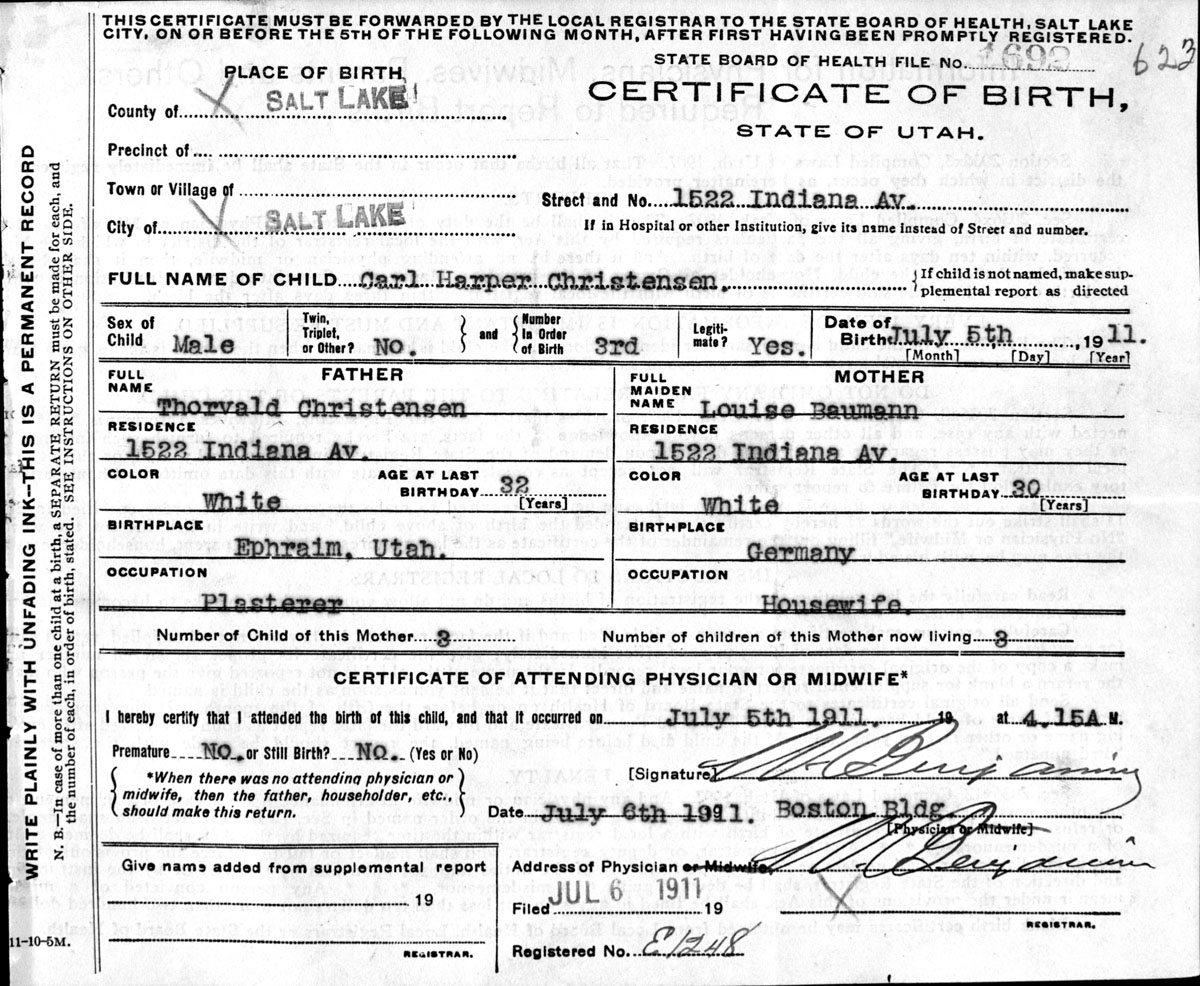 THIS CERTIFICATE MUST BE FORWARDED BY THE LOCAL REGISTRAR TO THE STATE BOARD OF HEALTH, SALT LAKE
CITY, ON OR BEFORE THE 5TH OF THE FOLLOWING MONTH, AFTER FIRST HAVING BEEN PROMPTLY REGISTERED.
STATE BOARD OF HEALTH FILE No. 1692
623
PLACE OF BIRTH,
County of SALT LAKE
CERTIFICATE OF BIRTH,
STATE OF UTAH.
Precinct of
Town or Village of
Street and No. 1522 Indiana Av.
City of SALT LAKE
If in Hospital or other Institution, give its name instead of Street and number.
FULL NAME OF CHILD Carl Harper Christensen.
If child is not named, make sup-
plemental report as directed
Sex of Child Male
Twin, Triplet, or Other? No.
and
Number in Order of Birth 3rd
Legiti- mate? Yes.
Date of Birth July 5th , 1911.
[Month] [Day] [Year]
FATHER
FULL NAME
Thorvald Christensen
RESIDENCE
1522 Indiana Av.
COLOR
White
AGE AT LAST BIRTHDAY 32
[Years]
BIRTHPLACE
Ephraim, Utah.
OCCUPATION
Plasterer
MOTHER
FULL MAIDEN NAME
Louise Baumann
RESIDENCE
1522 Indiana Av.
COLOR
White
AGE AT LAST BIRTHDAY 30
[Years]
BIRTHPLACE
Germany
OCCUPATION
Housewife.
Number of Child of this Mother 3
Number of children of this Mother now living 3
CERTIFICATE OF ATTENDING PHYSICIAN OR MIDWIFE*
I hereby certify that I attended the birth of this child, and that it occurred on July 5th 1911. 19 at 4.15A M.
Premature No. or Still Birth? No. (Yes or No)
*When there was no attending physician or
midwife, then the father, householder, etc.,
should make this return.
[Signature] Benjamin
Date July 6th 1911. Boston Bldg.
[Physician or Midwife]
Given names added from supplemental report
19
REGISTRAR.
Address of Physician or Midwife Benjamin
Filed JUL 6 1911 19
REGISTRAR.
Registered No. E1248
11-10-5M.
WRITE PLAINLY WITH UNFADING INK—THIS IS A PERMANENT RECORD
N. B.—In case of more than one child at a birth, a SEPARATE RETURN must be made for each, and
the number of each, in order of birth, stated. SEE INSTRUCTIONS ON OTHER SIDE.